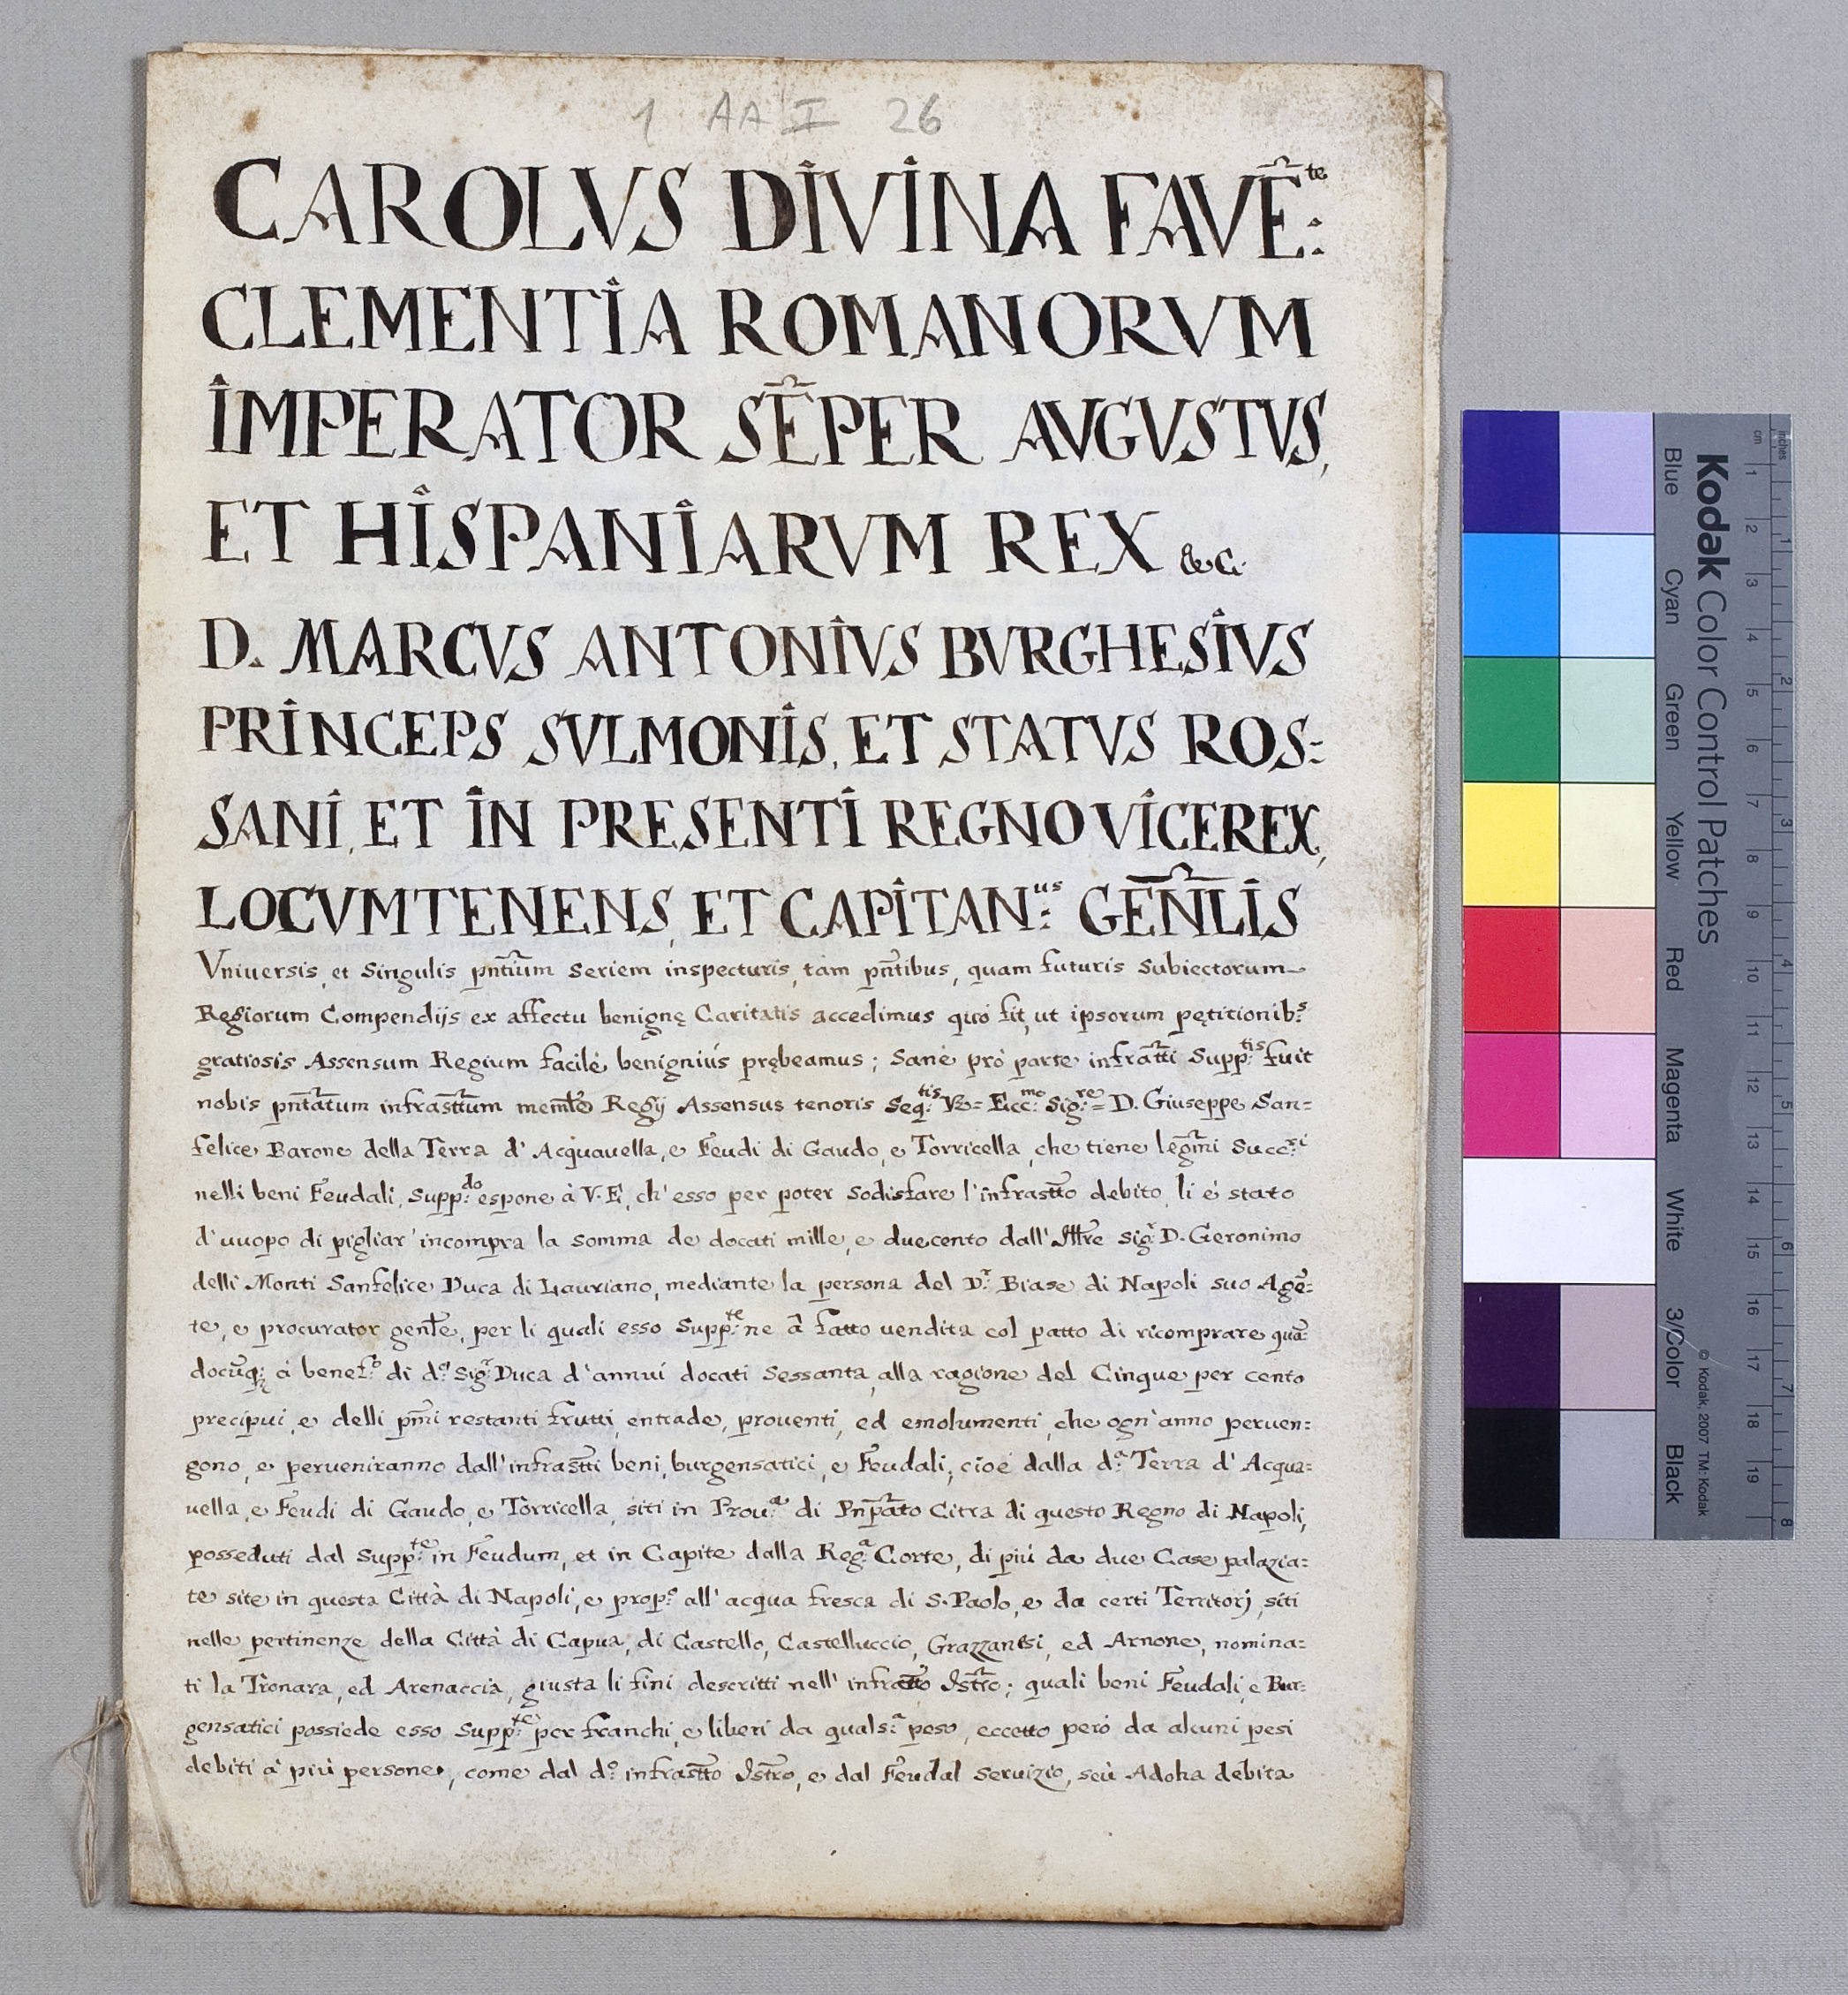 1 AA I 26
CAROLVS DIVINA FAVĒ:te
CLEMENTIA ROMANORVM
IMPERATOR SĒPER AVGVSTVS,
ET HISPANIARVM REX &c.
D. MARCVS ANTONIVS BVRGHESIVS
PRINCEPS SVLMONIS, ET STATVS ROS=
SANI, ET IN PRESENTI REGNO VICEREX,
LOCVMTENENS, ET CAPITAN:us GEÑLIS
Vniuersis, et Singulis pñtium seriem inspecturis, tam pñtibus, quam futuris Subiectorum
Regiorum Compendijs ex affectu benignę Caritatis accedimus quò fit, ut ipsorum pętitionib:s
gratiosis Assensum Regium facilè, benigniùs prębeamus; Sanè prò parte infratti Supp:tis fuit
nobis pñtatum infrasttum memle Regij Assensus tenoris Seq:tis Ecc:mo Sig:re= D. Giuseppe San=
felice Barone della Terra d' Acquauella, e Feudi di Gaudo, e Torricella, che tiene legmi Succ:ri
nelli beni Feudali, Supp:do espone à V.E, ch' esso per poter Sodisfare l'infrastto debito, li è stato
d' uuopo di pigliar' incompra la somma de docati mille, e duecento dall' Illre Sig:r D. Geronimo
delli Monti Sanfelice Duca di Lauriano, mediante la persona del D:r Biase di Napoli suo Agē=
te, e procurator genle, per li quali esso Supp:te ne à fatto uendita col patto di ricomprare quā=
docūq; à benef:o di d:o Sig:r Duca d' annui docati Sessanta, alla ragione del Cinque per cento
precipui, e delli pmi restanti frutti, entrade, prouenti, ed emolumenti, che ogn' anno peruen=
gono, e perueniranno dall' infrastti beni, burgensatici, e Feudali, cioè dalla d:a Terra d' Acqua=
uella, e Feudi di Gaudo, e Torricella, siti in Prou:a di Pnpato Citra di questo Regno di Napoli,
posseduti dal Supp:te in Feudum, et in Capite dalla Reg:a Corte, di più da due Case palazia=
te site in questa Città di Napoli, e prop:o all' acqua fresca di S. Paolo, e da certi Territorj, siti
nelle pertinenze della Città di Capua, di Castello, Castelluccio, Grazzanisi, ed Arnone, nomina=
ti la Tronara, ed Arenaccia, giusta li fini descritti nell' infratto Istro; quali beni Feudali, e Bur=
gensatici possiede esso Supp:te per franchi, e liberi da quals:a peso, eccetto però da alcuni pesi
debiti à più persone, come dal d:o infrastto Istro, e dal Feudal Seruizio, seù Adoha debita
Kodak Color Control Patches
Blue Cyan Green Yellow Red Magenta White 3/Color Black
© Kodak, 2007 TM: Kodak
cm 1 2 3 4 5 6 7 8 9 10 11 12 13 14 15 16 17 18 19
inches 1 2 3 4 5 6 7 8